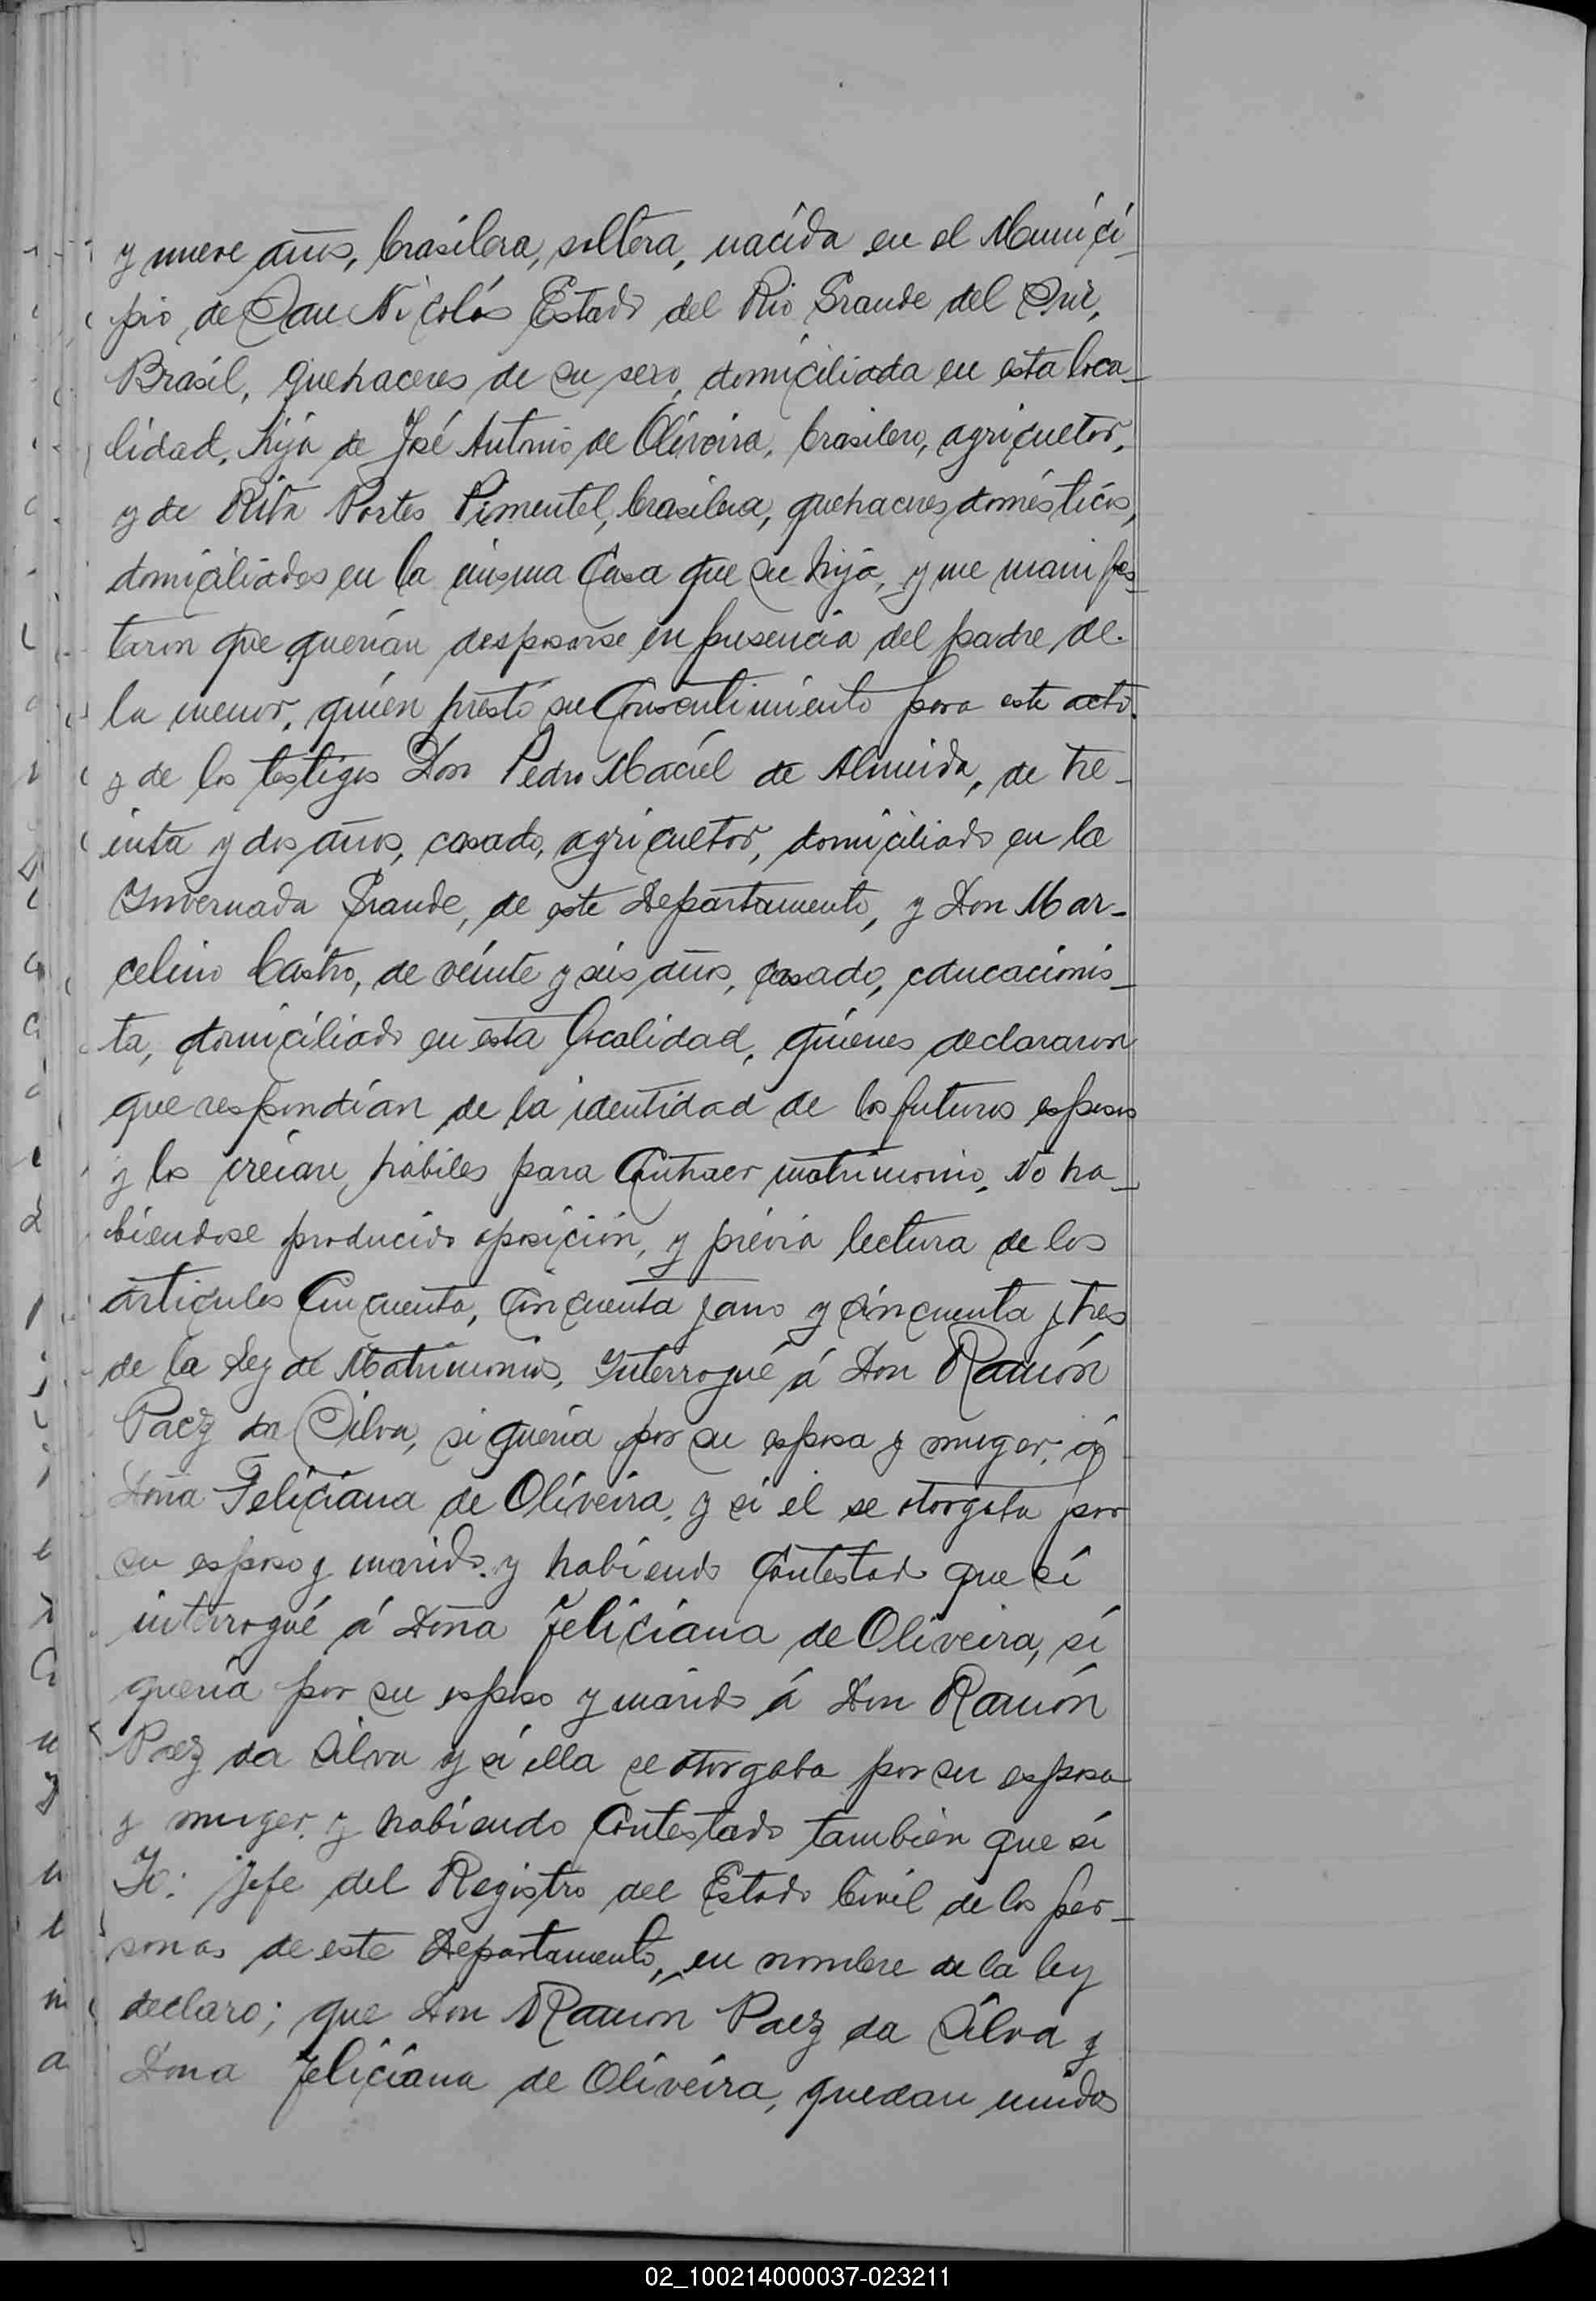 y nueve años, brasilera, soltera, nacida en el Munici-
pio de San Nicolás Estado del Rio Grande del Sur,
Brasil, quehaceres de su sexo, domiciliada en esta loca-
lidad, hija de José Antonio de Oliveira, brasilero, agricultor,
y de Rita Portes Pimentel, brasilera, quehaceres domésticos,
domiciliados en la misma Casa que su hija, y me manifes-
taron que querían desposarse en presencia del padre de
la menor, quién prestó su Consentimiento para este acto.
y de los testigos Don Pedro Maciel de Almeida, de tre-
inta y dos años, casado, agricultor, domiciliado en la
Invernada Grande, de este Departamento, y Don Mar-
celino Castro, de veinte y seis años, casado, educacionis-
ta, domiciliado en esta localidad, quienes declararon
que respondían de la identidad de los futuros esposos
y los creían hábiles para Contraer matrimonio, No ha-
biendose producido oposición, y prévia lectura de los
articulos Cincuenta, Cincuenta y uno y cincuenta y tres
de la Ley de Matrimonios, Interrogué á Don Ramón
Paez da Silva, si quería por su esposa y muger, á
Doña Feliciana de Oliveira, y si él se otorgaba por
su esposo y marido. y habiendo Contestado que sí
interrogué á Doña Feliciana de Oliveira, si
quería por su esposo y marido á Don Ramón
Paez da Silva y si ella se otorgaba por su esposa
y muger, y habiendo Contestado también que sí
Yo: jefe del Registro del Estado Civil de las per-
sonas de este Departamento, en nombre de la ley
declaro; que Don Ramón Paez da Silva y
Dona Feliciana de Oliveira, quedan unidos
02_100214000037-023211